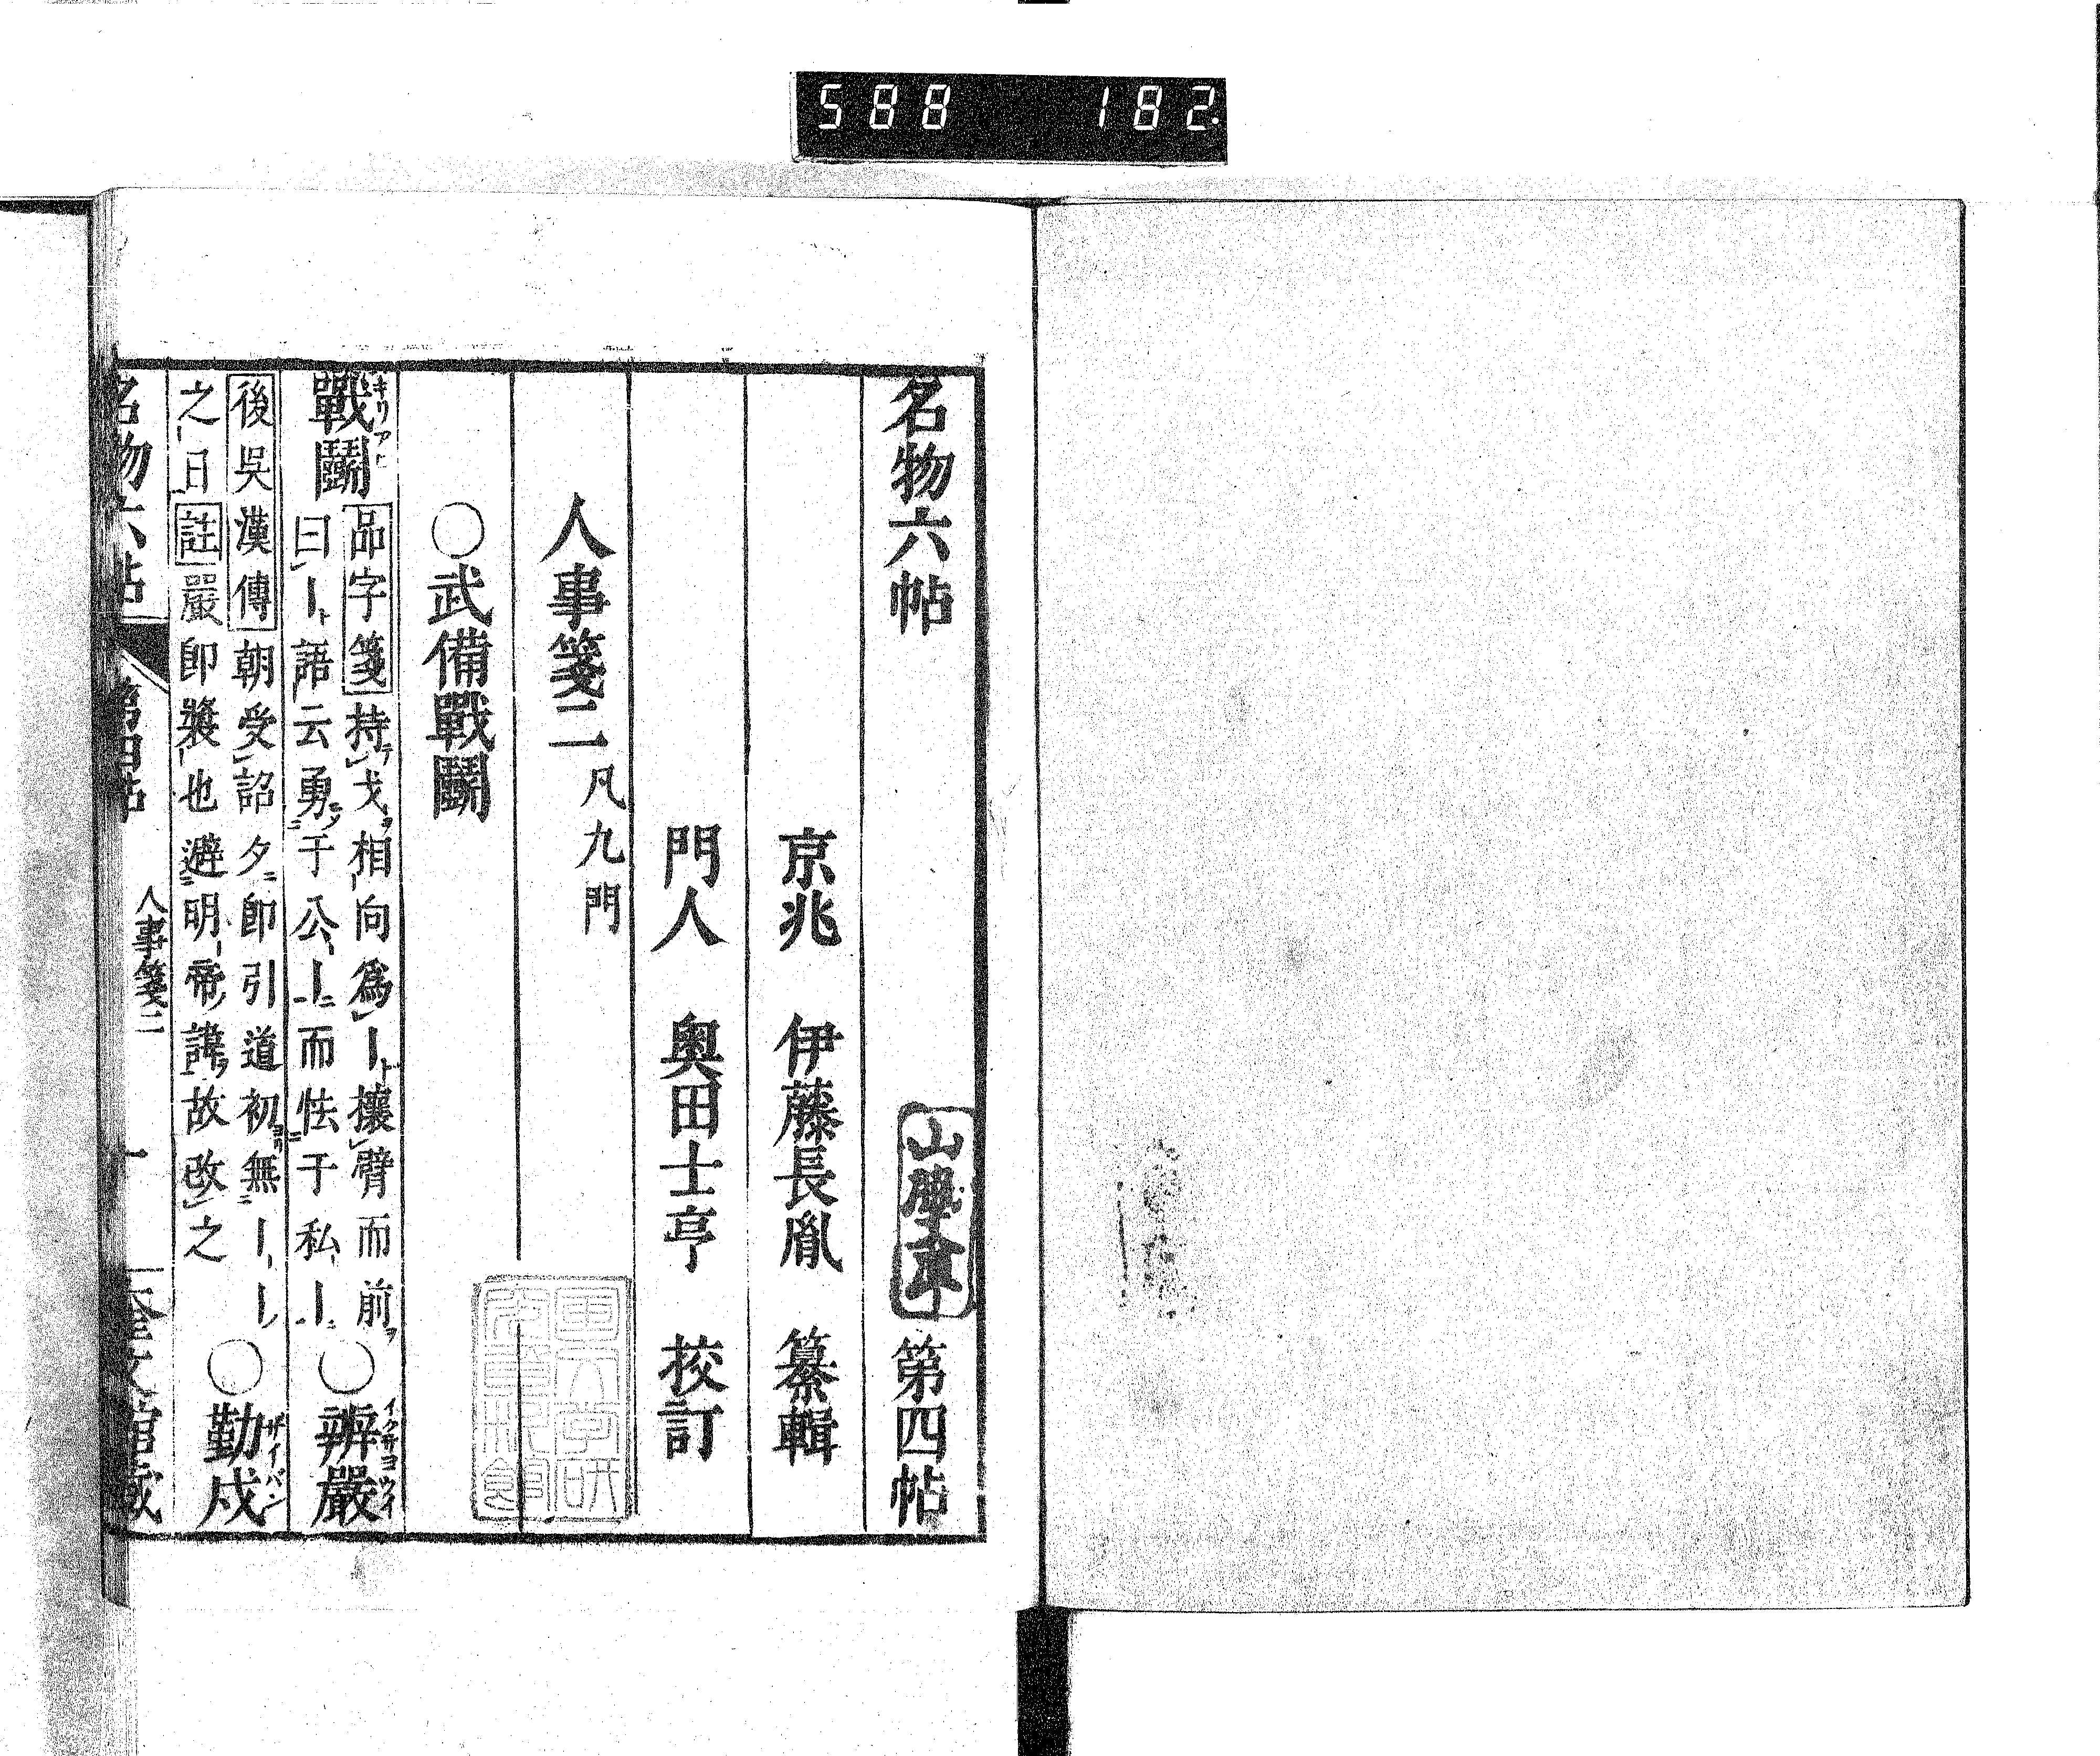 588 182
名物六帖 第四帖
京兆 伊藤長胤 纂輯
門人 奥田士亨 挍訂
人事箋二 凡九門
〇武備戰鬭
戰鬭 キリアヒ
品字箋持テ戈ヲ相向爲丨ト攘臂而前ヲ
曰丨ト語云勇ニ于公丨而怯ニ于私丨
〇辨嚴 イクサヨウイ
後吳漢傳朝受詔夕ニ即引道初ヨリ無丨丨
之日註嚴即裝也避明帝ノ諱ヲ故改之
〇勤戍 ザイバン
名物六帖 第四帖 人事箋二 一